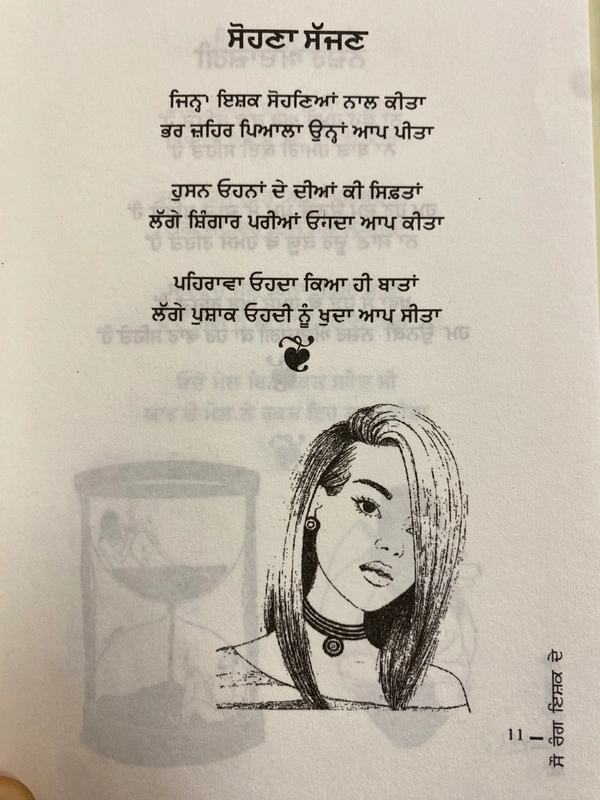 ਸੋਹਣਾ ਸੱਜਣ
ਜਿਨ੍ਹਾ ਇਸ਼ਕ ਸੋਹਣਿਆਂ ਨਾਲ ਕੀਤਾ
ਭਰ ਜ਼ਹਿਰ ਪਿਆਲਾ ਉਨ੍ਹਾਂ ਆਪ ਪੀਤਾ
ਹੁਸਨ ਓਹਨਾਂ ਦੇ ਦੀਆਂ ਕੀ ਸਿਫ਼ਤਾਂ
ਲੱਗੇ ਸ਼ਿੰਗਾਰ ਪਰੀਆਂ ਓਹਦਾ ਆਪ ਕੀਤਾ
ਪਹਿਰਾਵਾ ਓਹਦਾ ਕਿਆ ਹੀ ਬਾਤਾਂ
ਲੱਗੇ ਪੁਸ਼ਾਕ ਓਹਦੀ ਨੂੰ ਖੁਦਾ ਆਪ ਸੀਤਾ
ਸੌ ਰੰਗ ਇਸ਼ਕ ਦੇ
11